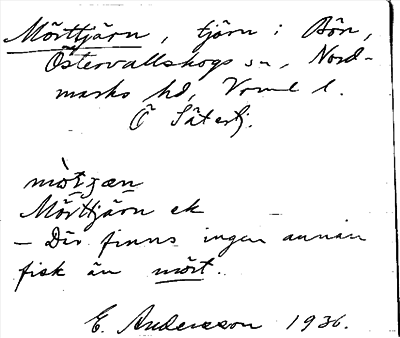 Mörttjärn, tjärn i Bön,
Östervallskogs sn, Nord-
marks hd, Vrml l.
Ö Säterbj.
Mörttjärn ek
– Där finns ingen annan
fisk än mört.
E. Andersson 1936.